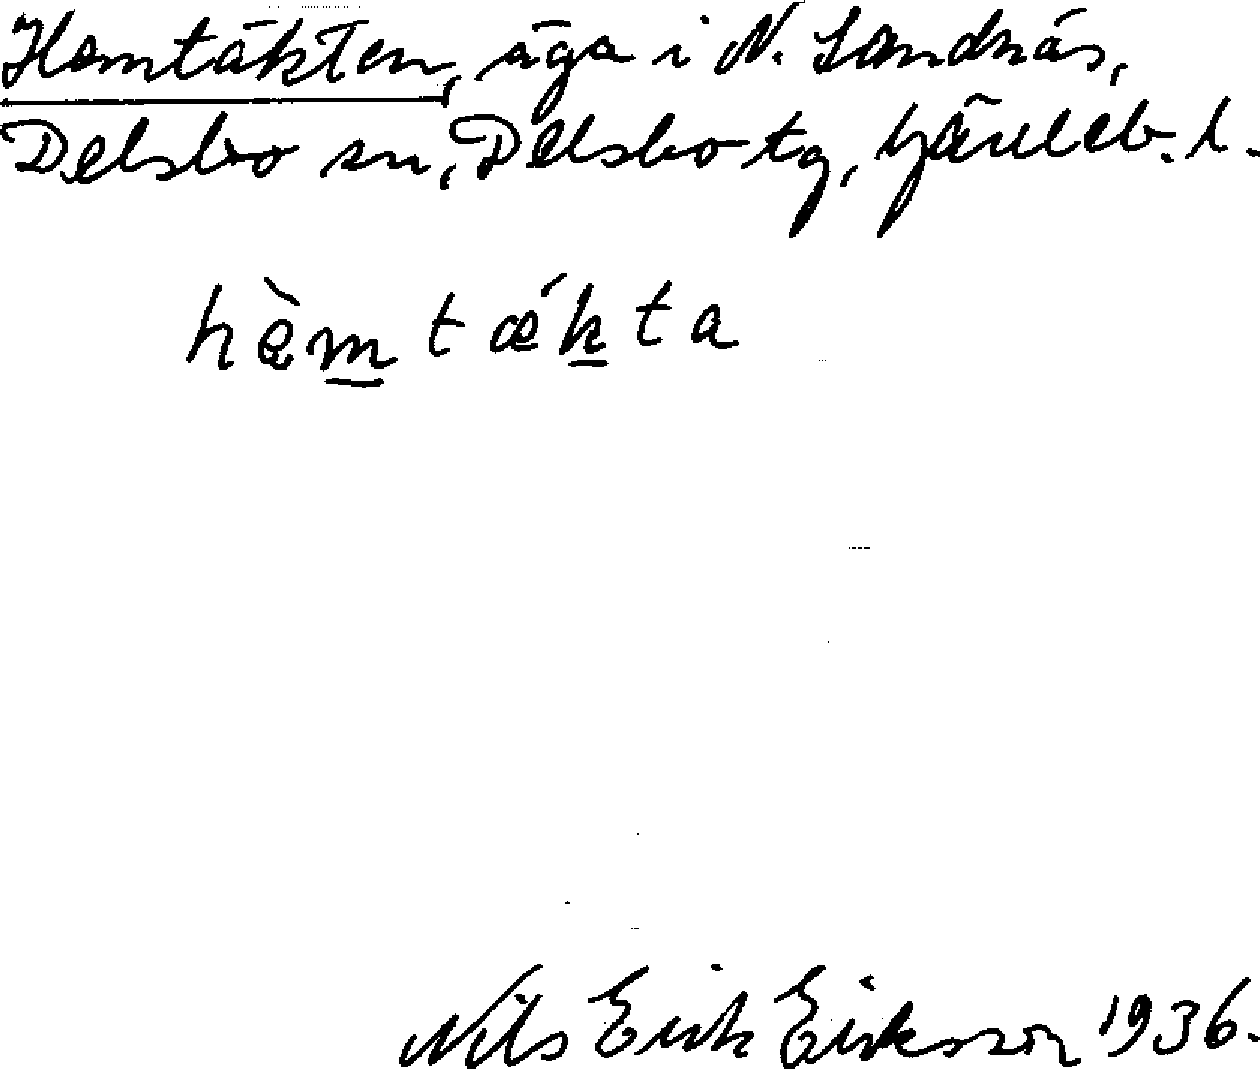 Hemtäkten, äga i N. Sandnäs,
Delsbo sn, Delsbo tg, Gävleb. l.
hèmtǽkta
Nils Erik Eriksson 1936.